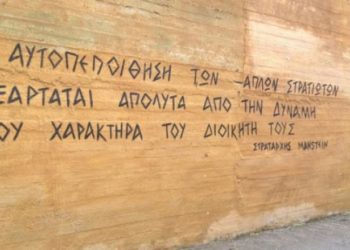 ΑΥΤΟΠΕΠΟΙΘΗΣΗ ΤΩΝ ΑΠΛΩΝ ΣΤΡΑΤΙΩΤΩΝ
ΞΑΡΤΑΤΑΙ ΑΠΟΛΥΤΑ ΑΠΟ ΤΗΝ ΔΥΝΑΜΗ
ΟΥ ΧΑΡΑΚΤΗΡΑ ΤΟΥ ΔΙΟΙΚΗΤΗ ΤΟΥΣ
ΣΤΡΑΤΑΡΧΗΣ ΜΑΝΣΤΑΙΝ